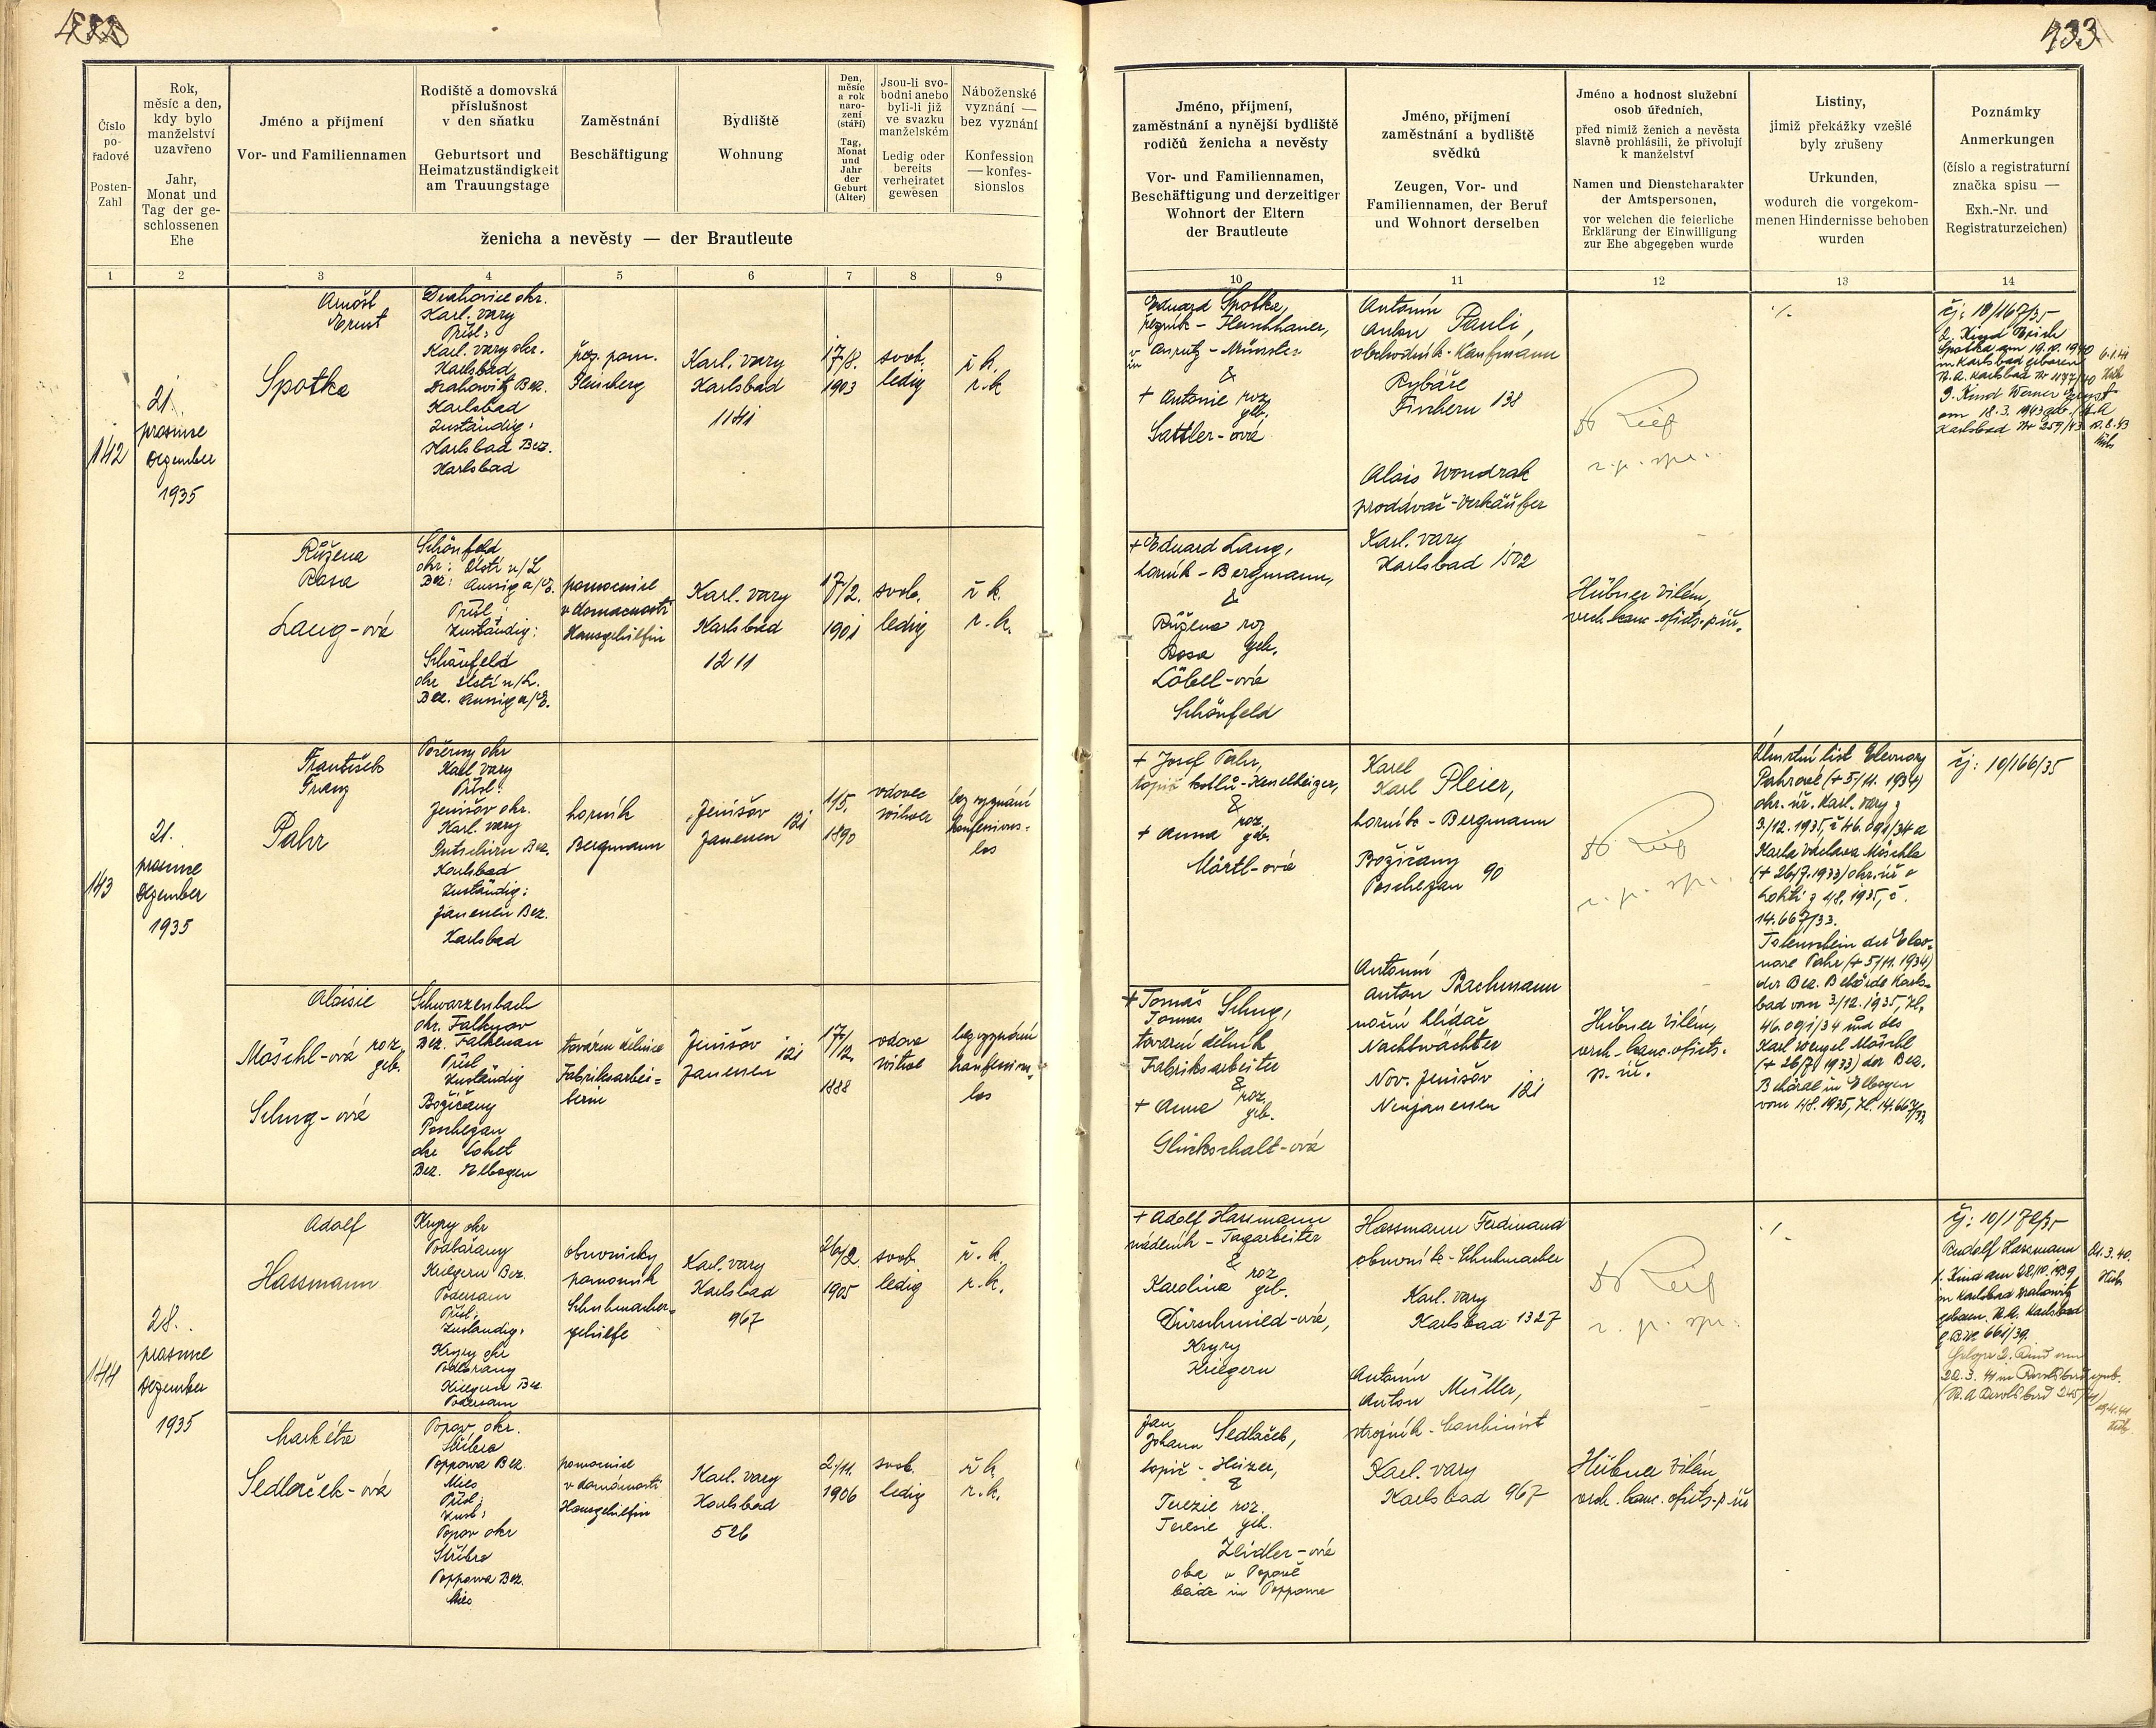 433
Číslo
po-
řadové
Posten-
Zahl
Rok,
měsíc a den,
kdy bylo
manželství
uzavřeno
Jahr,
Monat und
Tag der ge-
schlossenen
Ehe
Jméno a příjmení
Vor- und Familiennamen
Rodiště a domovská
příslušnost
v den sňatku
Geburtsort und
Heimatzuständigkeit
am Trauungstage
Zaměstnání
Beschäftigung
Bydliště
Wohnung
Den,
měsíc
a rok
naro-
zení
(stáří)
Tag,
Monat
und
Jahr
der
Geburt
(Alter)
Jsou-li svo-
bodni anebo
byli-li již
ve svazku
manželském
Ledig oder
bereits
verheiratet
gewesen
Náboženské
vyznání —
bez vyznání
Konfession
— konfes-
sionslos
ženicha a nevěsty — der Brautleute
Jméno, příjmení,
zaměstnání a nynější bydliště
rodičů ženicha a nevěsty
Vor- und Familiennamen,
Beschäftigung und derzeitiger
Wohnort der Eltern
der Brautleute
Jméno, příjmení
zaměstnání a bydliště
svědků
Zeugen, Vor- und
Familiennamen, der Beruf
und Wohnort derselben
Jméno a hodnost služební
osob úředních,
před nimiž ženich a nevěsta
slavně prohlásili, že přivolují
k manželství
Namen und Dienstcharakter
der Amtspersonen,
vor welchen die feierliche
Erklärung der Einwilligung
zur Ehe abgegeben wurde
Listiny,
jimiž překážky vzešlé
byly zřušeny
Urkunden,
wodurch die vorgekom-
menen Hindernisse behoben
wurden
Poznámky
Anmerkungen
(číslo a registraturní
značka spisu —
Exh.-Nr. und
Registraturzeichen)
1 2 3 4 5 6 7 8 9 10 11 12 13 14
142
21.
prosince
Dezember
1935
Arnošt
Ernst
Spotka
Drahovice okr.
Karl. vary
Přísl:
Karl. vary okr.
Karlsbad
Drahowitz Bez.
Karlsbad
Zuständig:
Karlsbad Bez.
Karlsbad
řez. pom.
Karl. vary
Karlsbad
1141
17/8.
1903
svob.
ledig
ř. k.
r. k.
Eduard Spotka,
řezník - Fleischhauer,
v
in Münster
&
+ Antonie roz.
geb.
Sattler-ová
Antonín
Anton Pauli,
obchodník - Kaufmann
Rybáře
Fischern 138
Alois Wondrak
prodavač - Verkäufer
Karl. vary
Karlsbad 1502
čj: 10/167/35
2. Kind Erich
Spotka am 19.10.1940
in Karlsbad geboren
Karlsbad Nr 1177/40
3. Kind Werner Ernst
am 18.3.1943 geb.
Karlsbad Nr 259/43
Růžena
Rosa
Lang-ová
Schönfeld
okr: Ústí n/L
Bez: Aussig a/E.
Přísl:
Zuständig:
Schönfeld
okr Ústí n/L.
Bez. Aussig a/E.
pomocnice
v domácnosti
Hausgehilfin
Karl. vary
Karlsbad
1211
17/2.
1901
svob.
ledig
ř. k.
r. k.
+ Eduard Lang,
horník - Bergmann,
&
Růžena roz
Rosa geb.
Löbel-ová
Schönfeld
Hübner Vilém,
vrch. kanc. ofici. p. úř.
143
21.
prosince
Dezember
1935
František
Franz
Pahr
Počerny okr
Karl. vary
Přísl:
Jenišov okr.
Karl. vary
Putschirn Bez.
Karlsbad
Zuständig:
Janessen Bez.
Karlsbad
horník
Bergmann
Jenišov
Janessen 121
1/5.
1890
vdovec
witwer
bez vyznání
konfessions-
los
+ Josef Pahr,
topič kotlů - Kesselheizer,
&
+ Anna roz.
geb.
Märtl-ová
Karel
Karl Pleier,
horník - Bergmann
Božičany
Poschezau 90
Antonín
Anton Bachmann
noční hlídač
Nachtwächter
Nov. Jenišov
Neujanessen 121
Úmrtní list Eleonory
Pahrové (+ 5/11. 1934)
okr. úř. Karl. vary z
3/12. 1935, č 46.091/34 a
Karla Václava Möschla
(+ 26/7. 1933) okr. úř v
Lokti z 4/8. 1935, č.
14.667/33.
Totenschein der Eleo-
nore Pahr (+ 5/11. 1934)
der Bez. Behörde Karls-
bad vom 3/12. 1935, Zl.
46.091/34 und des
Karl Wenzel Möschl
(+ 26/7/ 1933) der Bez.
Behörde in Elbogen
vom 4/8. 1935, Zl. 14.667/33
čj: 10/166/35
Aloisie
Möschl-ová roz
geb.
Schug-ová
Schwarzenbach
okr. Falknov
Bez. Falkenau
Přísl
Zuständig
Božičany
Poschezau
okr Loket
Bez. Elbogen
tovární dělnice
Fabriksarbei-
terin
Jenišov
Janessen 121
17/12.
1888
vdova
witwe
bez vyznání
konfession-
los
+ Tomáš
Tomas Schug,
tovární dělník
Fabriksarbeiter
&
+ Anna roz.
geb.
Glückschalt-ová
Hübner Vilém,
vrch. kanc. ofici.
p. úř.
144
28.
prosince
Dezember
1935
Adolf
Hassmann
Kryry okr
Podbořany
Kriegern Bez.
Podersam
Přísl:
Zuständig:
Kryry okr
Podbořany
Kriegern Bez
Podersam
obuvnický
pomocník
Schuhmacher-
gehilfe
Karl. vary
Karlsbad
967
26/2
1905
svob.
ledig
ř. k.
r. k.
+ Adolf Hassmann
nádeník - Tagarbeiter
&
Karolina roz
geb.
Dürschmied-ová,
Kryry
Kriegern
Hassmann Ferdinand
obuvník - Schuhmacher
Karl. vary
Karlsbad 1327
Antonín
Anton Müller,
strojník - Maschinist
Karl. vary
Karlsbad 967
Rudolf Hassmann
1. Kind am 28/10.1939
in Karlsbad Drahowitz
geboren. Karlsbad
661/39.
Markéta
Sedláček-ová
Popov, okr.
Stříbro
Poppowa Bez.
Mies
Přísl:
Zust:
Popov okr
Stříbro
Poppowa Bez.
Mies
pomocnice
v domácnosti
Hausgehilfin
Karl. vary
Karlsbad
526
2/11.
1906
svob.
ledig
ř. k.
r. k.
Jan
Johann Sedláček,
topič - Heizer,
&
Terezie roz.
Teresie geb.
Zeidler-ová
oba v Popově
beide in Poppowa
Hübner Vilém
vrch. kanc. ofici. p. úř